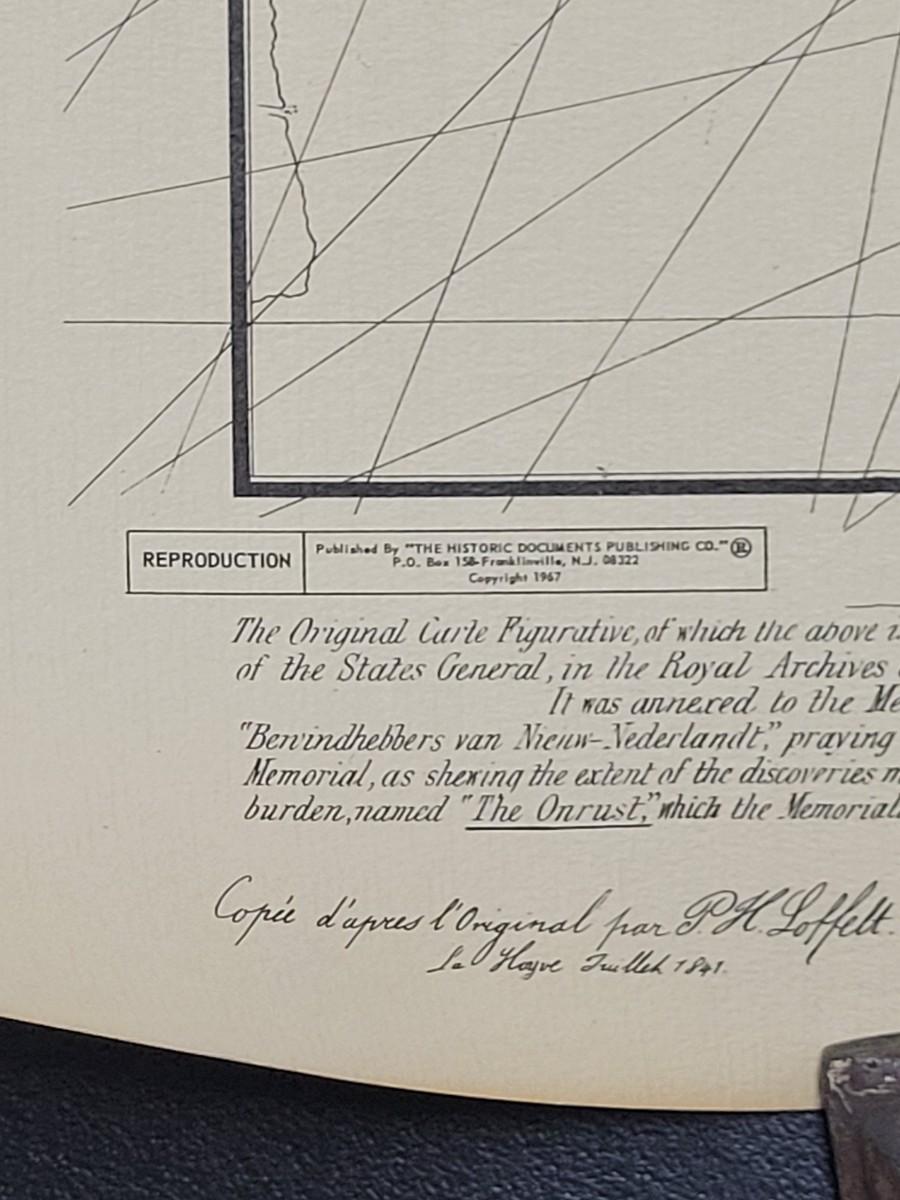 REPRODUCTION
Published By "THE HISTORIC DOCUMENTS PUBLISHING CO." ®
P.O. Box 158-Franklinville, N.J. 08322
Copyright 1967
The Original Carte Figurative, of which the above
of the States General, in the Royal Archives
It was annexed to the
"Bewindhebbers van Nieuw-Nederlandt," praying
Memorial, as shewing the extent of the discoveries
burden, named "The Onrust," which the
Copiée d'apres l'Original par P. H. Loffelt.
La Haye Juillet 1841.